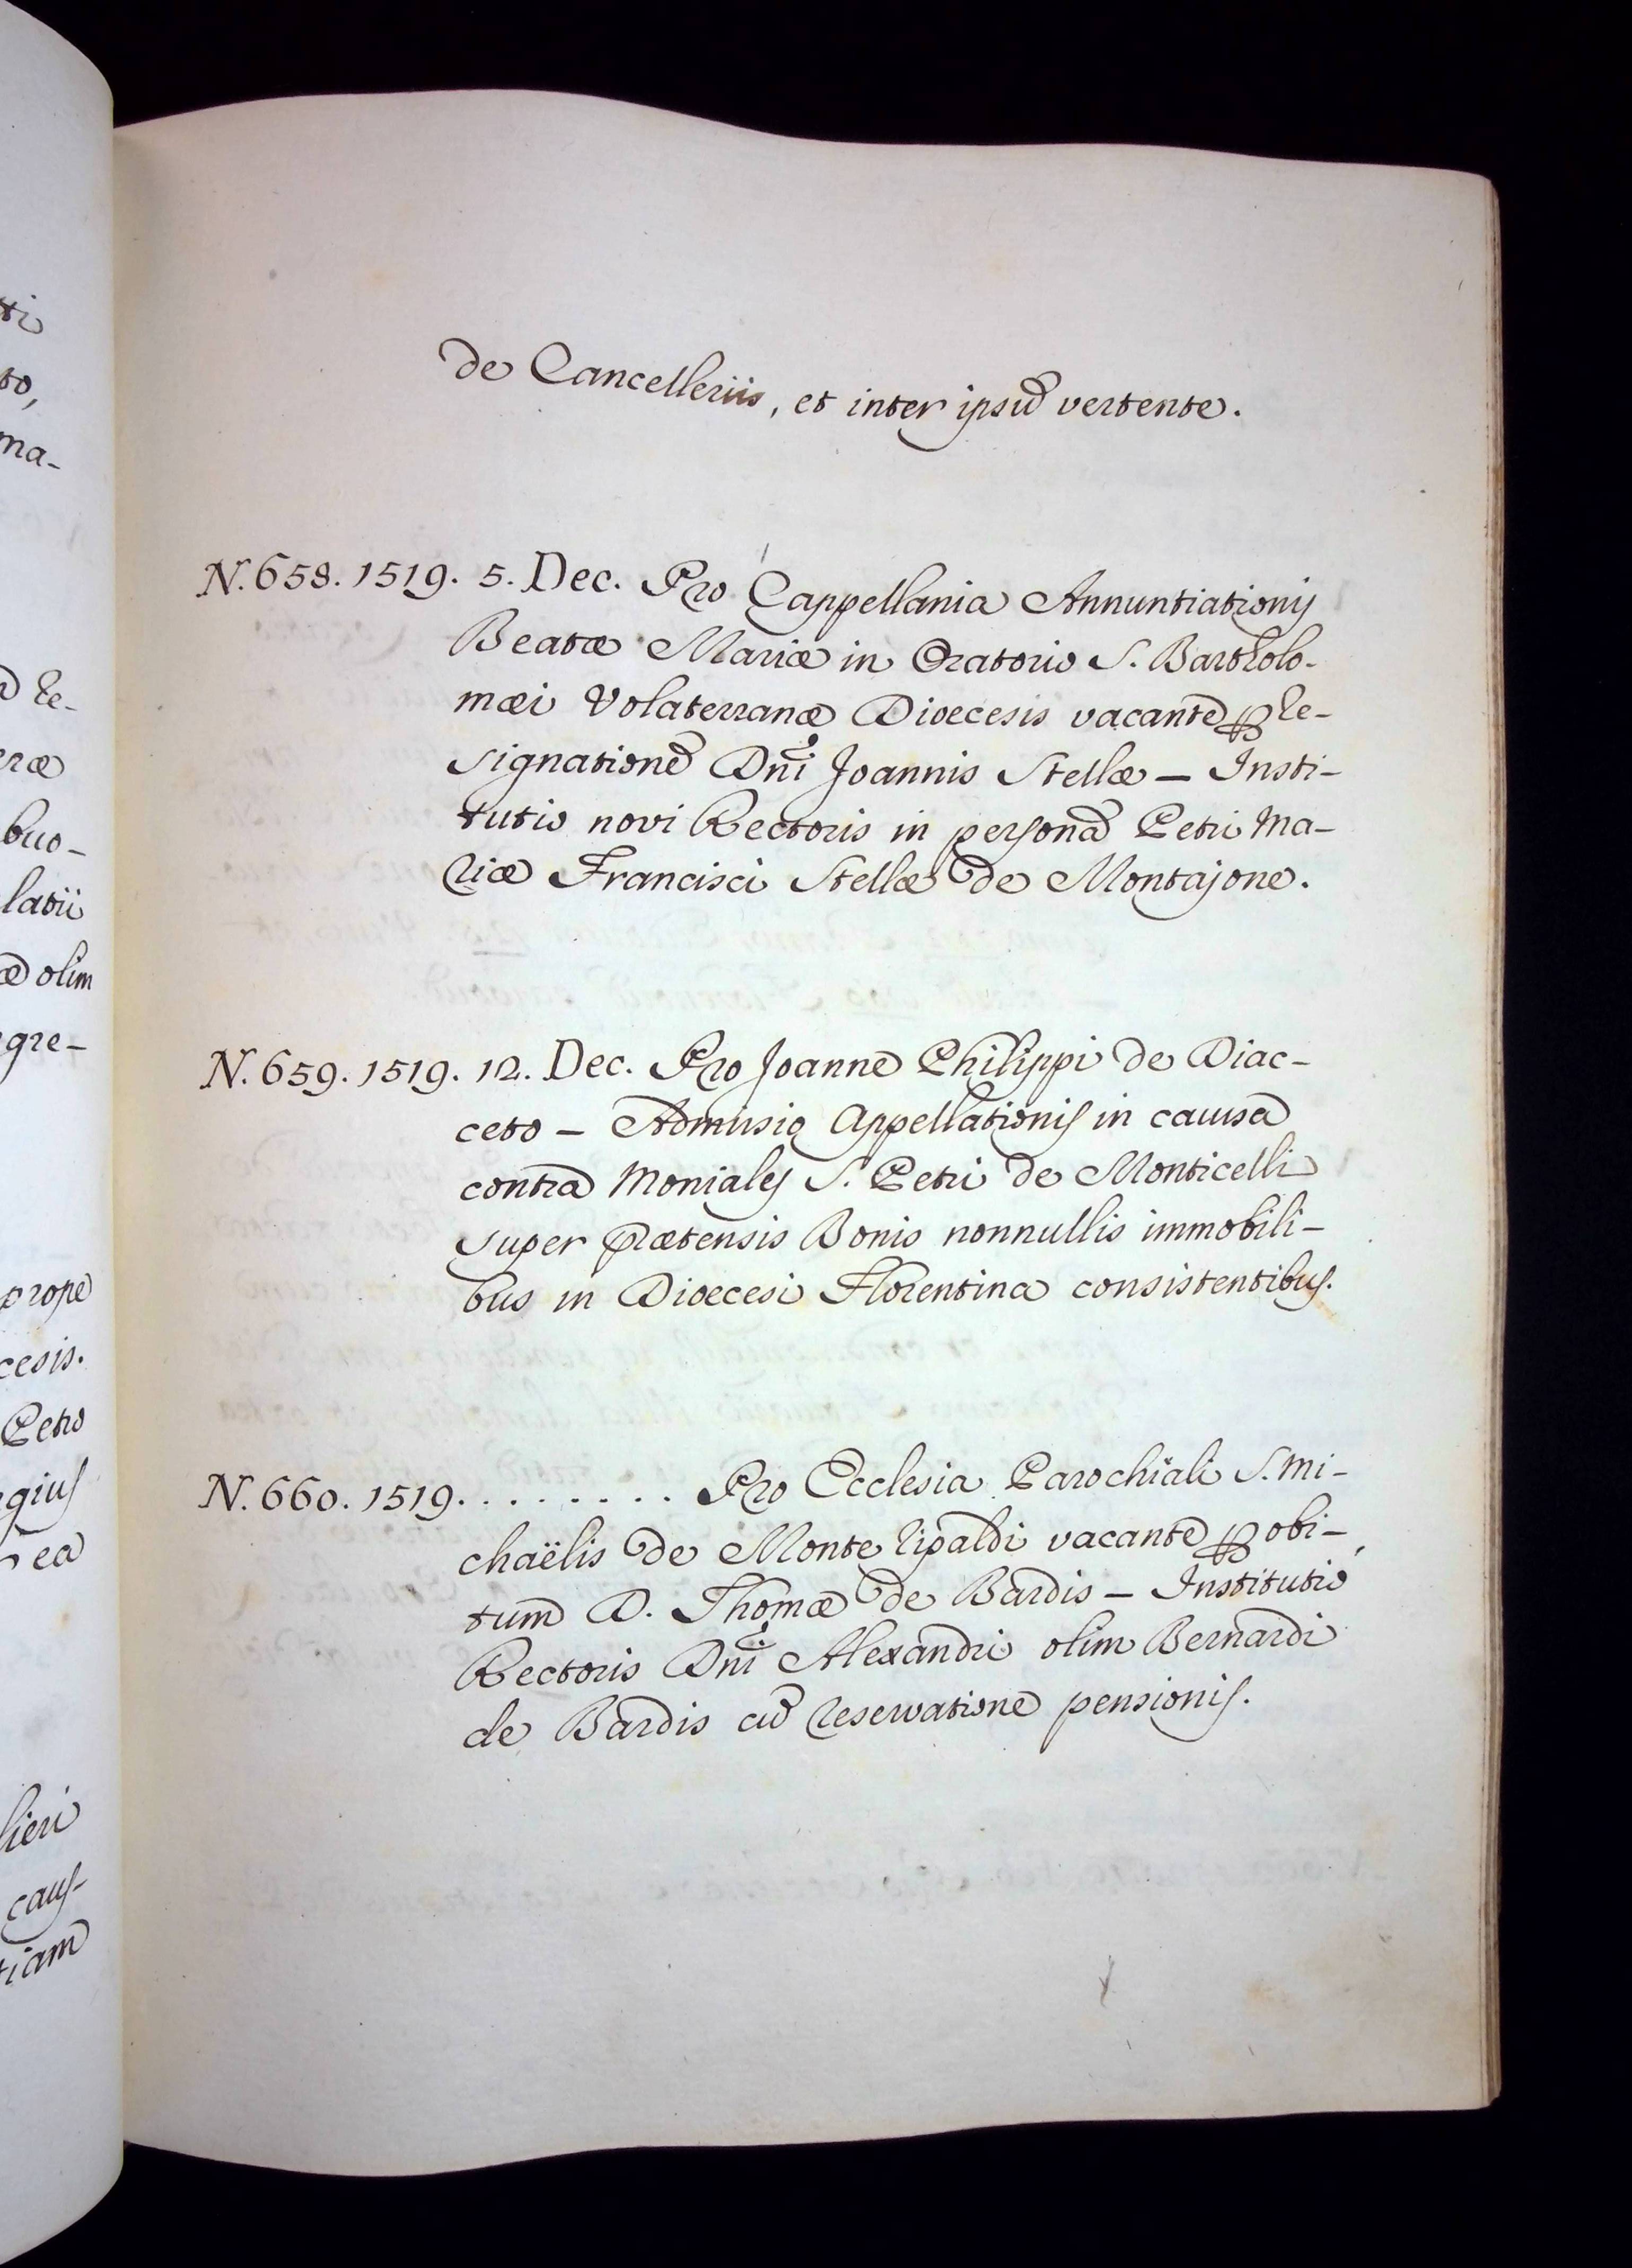 ti
to,
ma-
re-
ræ
buo-
latii
olim
gre-
prope
cesis.
Petro
gius
ea
lieri
caus-
tiam
de Cancelleriis, et inter ipsũ vertente.
N. 658. 1519. 5. Dec. Pro Cappellania Annuntiationis
Beatæ Mariæ in Oratorio S. Bartholo-
mæi Volaterranæ Dioecesis vacante ꝑ re-
signationẽ Dñi Joannis Stellæ — Insti-
tutio novi Rectoris in personã Petri Ma-
riæ Francisci Stellæ de Montajone.
N. 659. 1519. 12. Dec. Pro Joanne Philippi de Diac-
ceto — Admisio Appellationis in caussa
contra Moniales S. Petri de Monticelli
super prætensis Bonis nonnullis immobili-
bus in Dioecesi Florentina consistentibus.
N. 660. 1519. . . . . . . . . Pro Ecclesia Parochiali S. Mi-
chaëlis de Monte ripaldi vacante ꝑ obi-
tum D. Thomæ de Bardis — Institutio
Rectoris Dñi Alexandri olim Bernardi
de Bardis cũ reservatione pensionis.